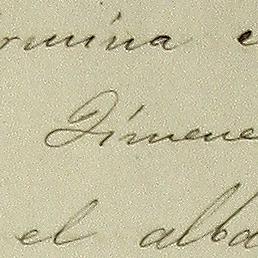 ermina e
Jimene
el alba